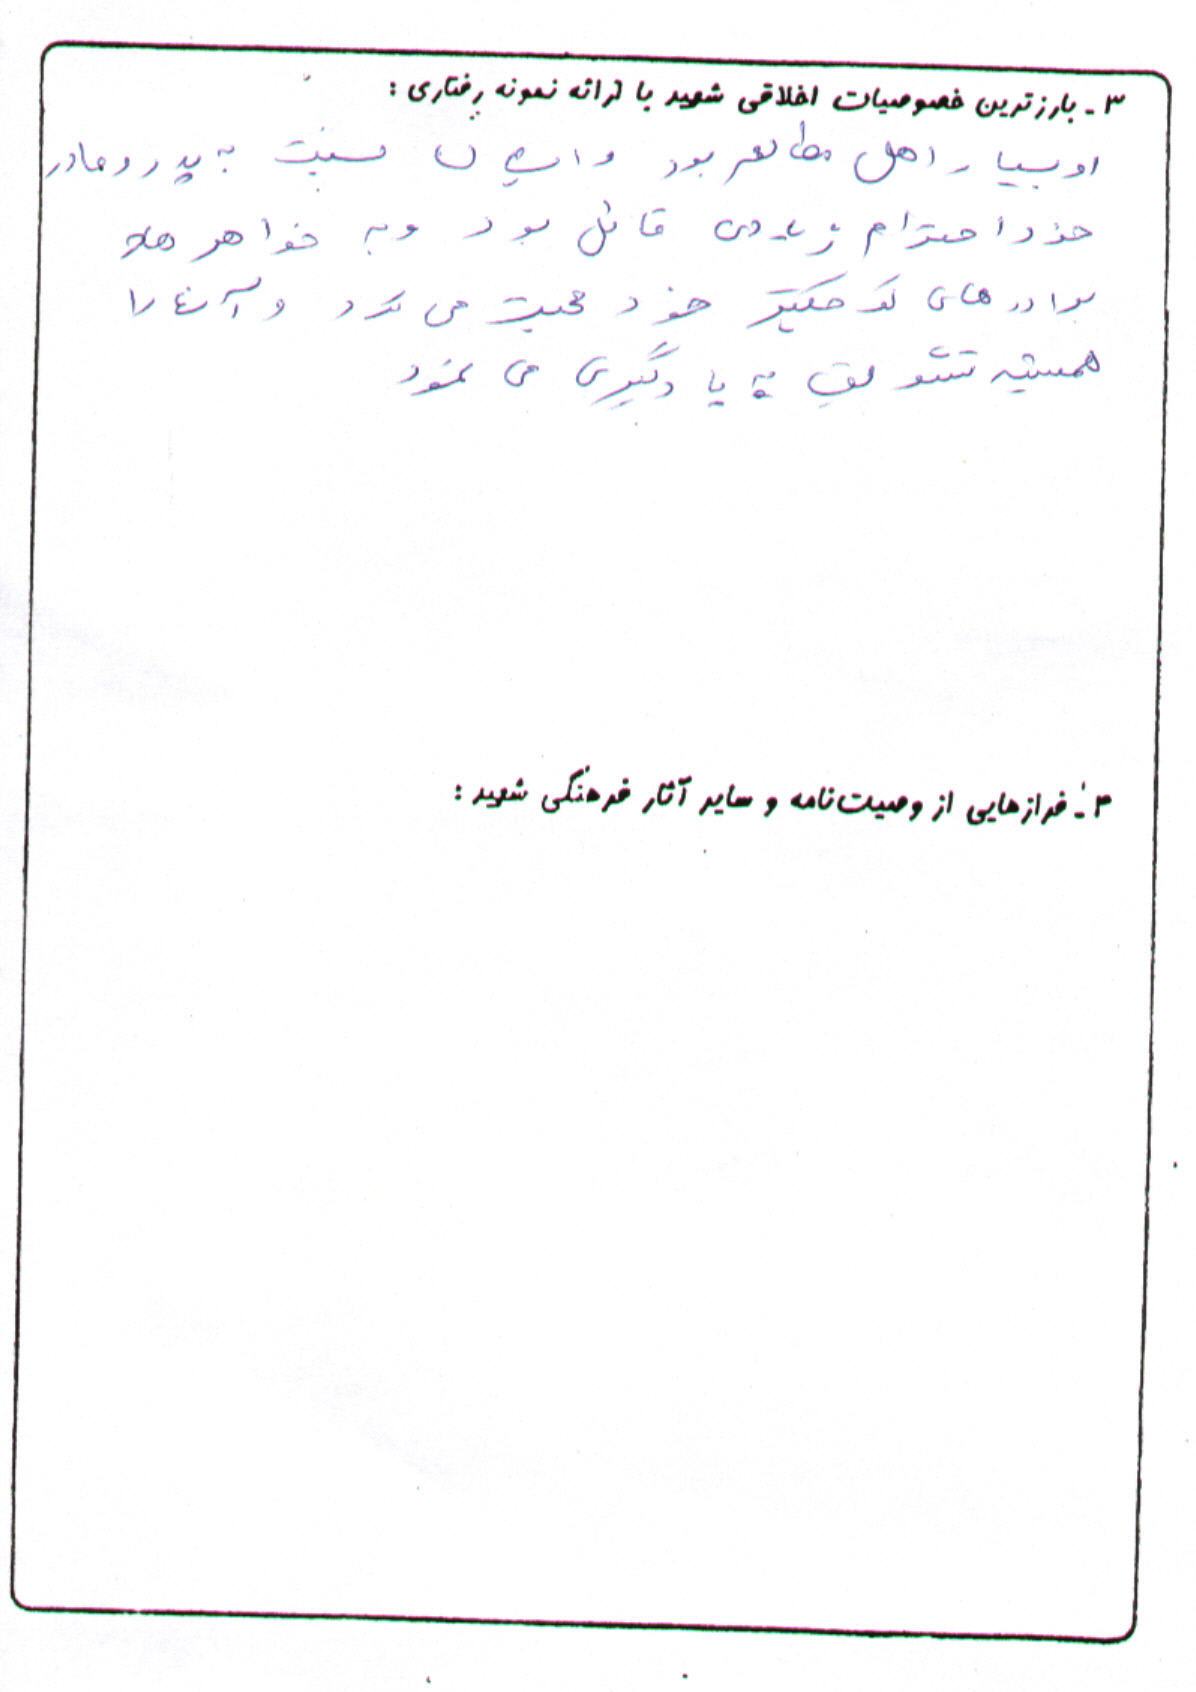 ۳ـ بارزترین خصوصیات اخلاقی شهید با ارائه نمونه رفتاری :
او بسیار اهل مطالعه بود و ایشان نسبت به پدر و مادر
خود احترام زیادی قائل بود و به خواهر ها و
برادرهای کوچکتر خود محبت می کرد و آنها را
همیشه تشویق به یادگیری می نمود
۴ـ فرازهایی از وصیت‌نامه و سایر آثار فرهنگی شهید :